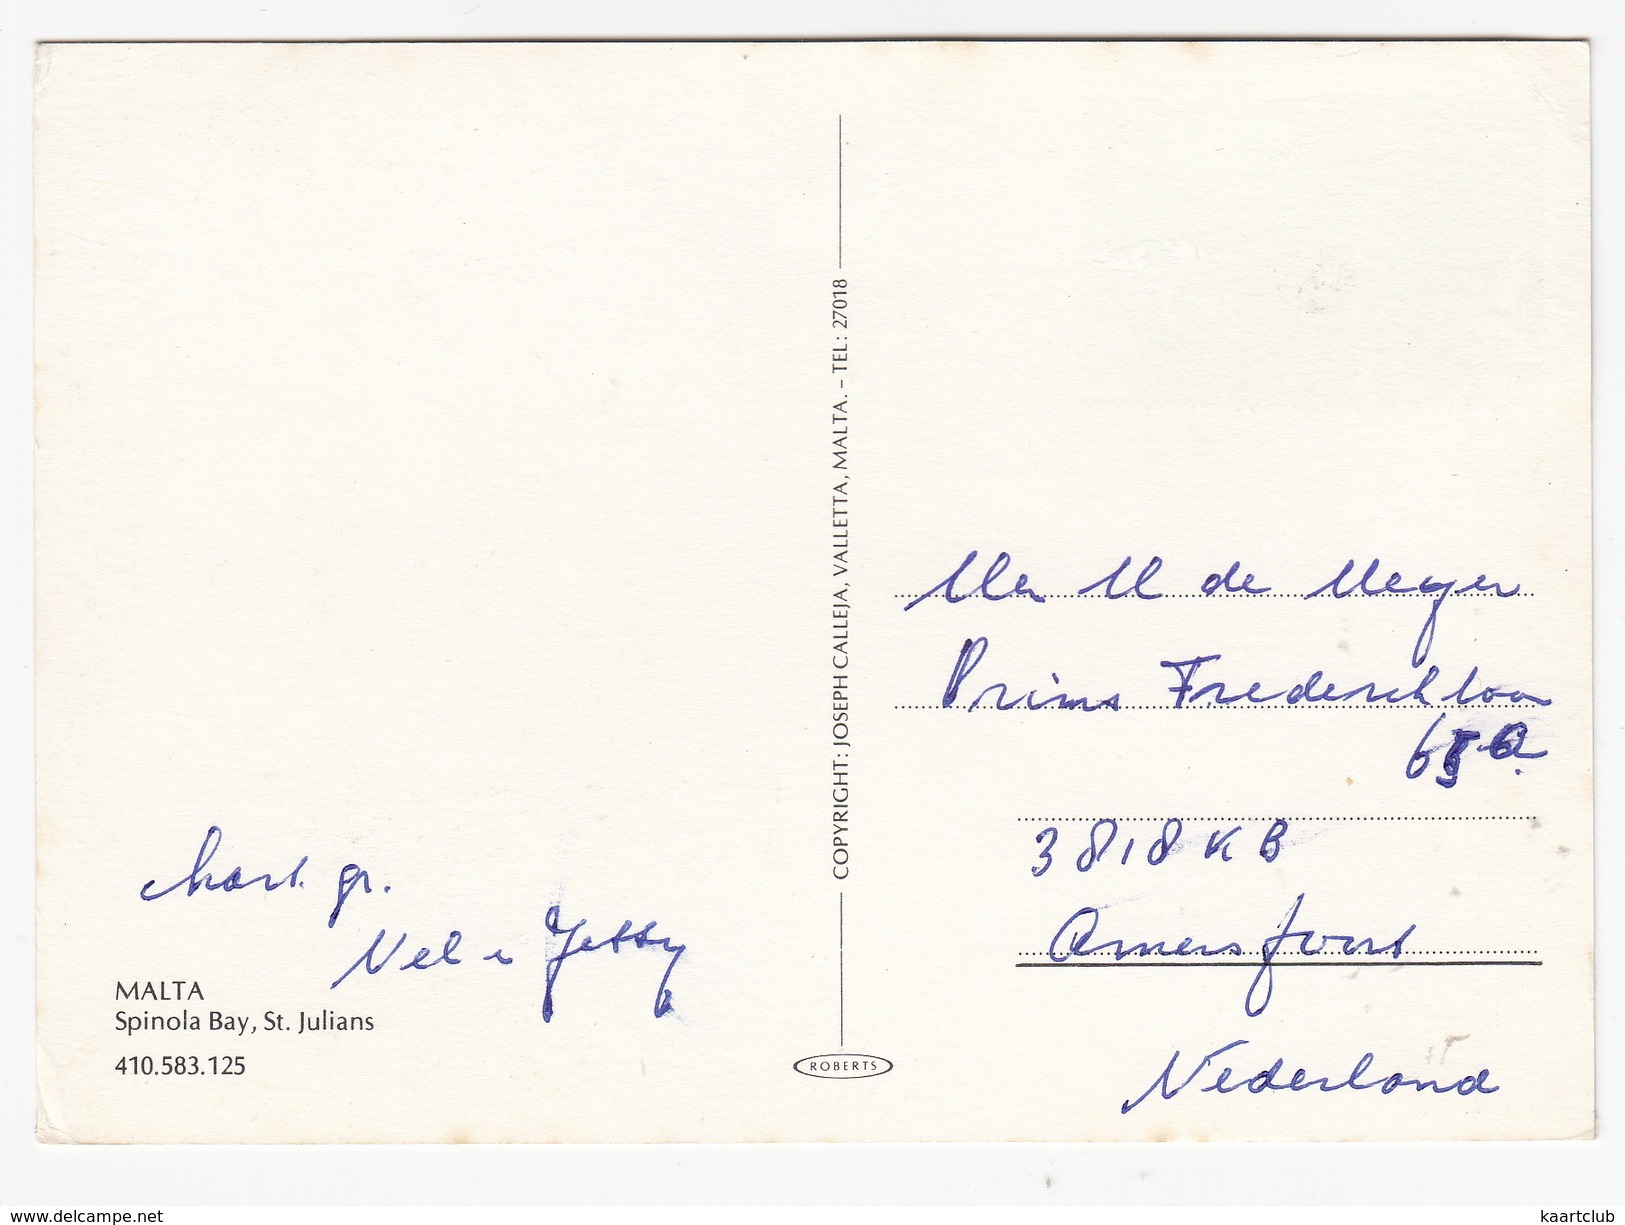 hart. gr.
Nel e Jetty
MALTA
Spinola Bay, St. Julians
410.583.125
COPYRIGHT: JOSEPH CALLEJA, VALLETTA, MALTA. – TEL: 27018
ROBERTS
M de Meyer
Prins Frederiklaan
65 a.
3818 KB
Amersfoort
Nederland
www.delcampe.net
kaartclub